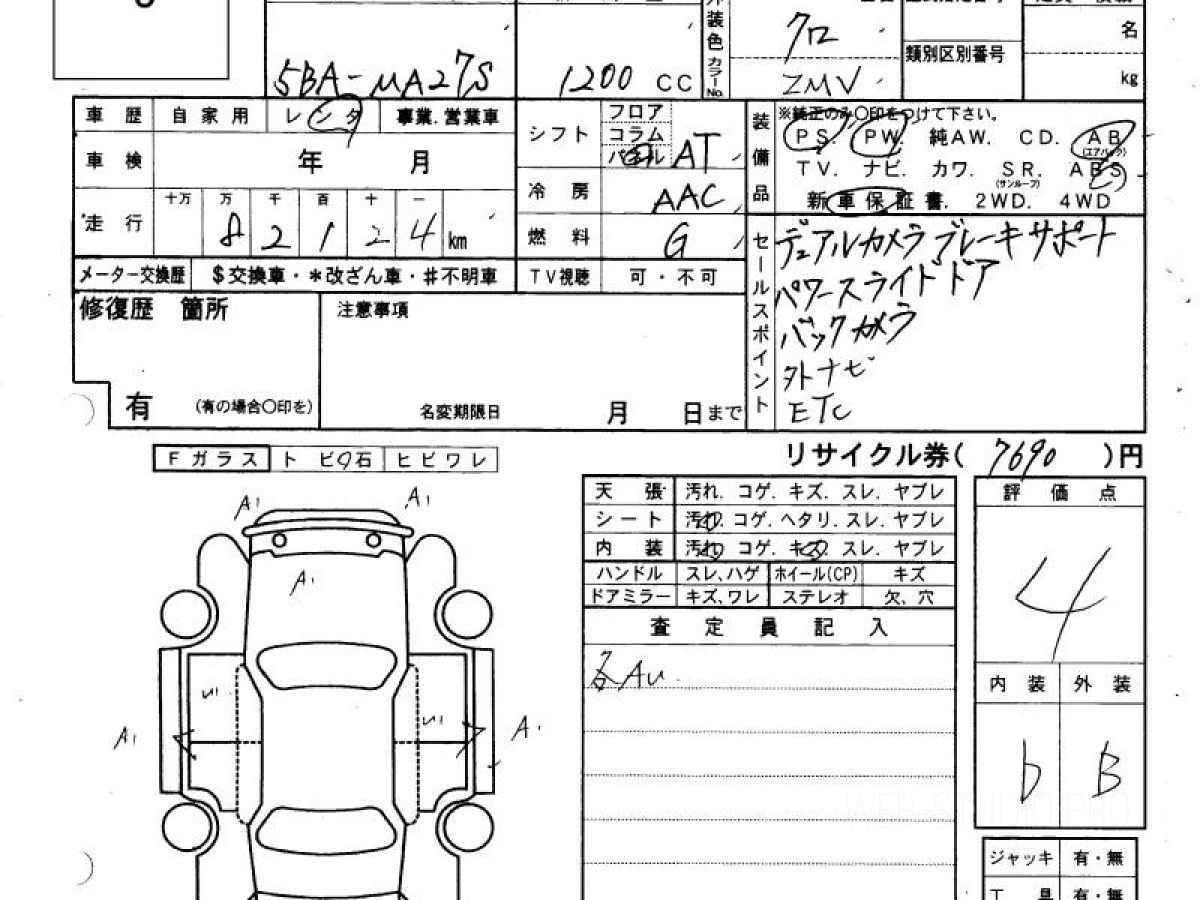 装色 カラーNo.
クロ
ZMV
類別区別番号
名
kg
5BA-MA27S
1200 CC
車歴 自家用 レンタ 事業.営業車
車検 年 月
走行 十万 万 千 百 十 一
8 2 1 2 4 km
メーター交換歴 $交換車・*改ざん車・#不明車
シフト フロア コラム パネル AT
冷房 AAC
燃料 G
TV視聴 可・不可
装備品
※純正のみ○印をつけて下さい。
PS. PW. 純AW. CD. AB (エアバック)
TV. ナビ. カワ. SR. ABS
(サンルーフ)
新車保証書. 2WD. 4WD
セールスポイント
デュアルカメラブレーキサポート
パワースライドドア
バックカメラ
外ナビ
ETC
修復歴 箇所
有 (有の場合○印を)
注意事項
名変期限日 月 日まで
リサイクル券( 7690 )円
Fガラス ト ビ石 ヒビワレ
A1 A1
A1
U1 U1
A1 A1
天張 汚れ. コゲ. キズ. スレ. ヤブレ
シート 汚れ. コゲ. ヘタリ. スレ. ヤブレ
内装 汚れ コゲ. キズ. スレ. ヤブレ
ハンドル スレ、ハゲ ホイール(CP) キズ
ドアミラー キズ、ワレ ステレオ 欠、穴
査定員記入
各AU
評価点
4
内装 外装
b B
ジャッキ 有・無
工具 有・無
WEB STUDIO PRO